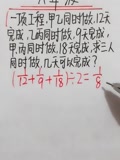 一项工程,甲乙同时做,12天
完成,乙丙同时做,9天完成,
甲、丙同时做,18天完成,求三人
同时做,几天可以完成?
(1/12+1/9+1/18)÷2=1/8